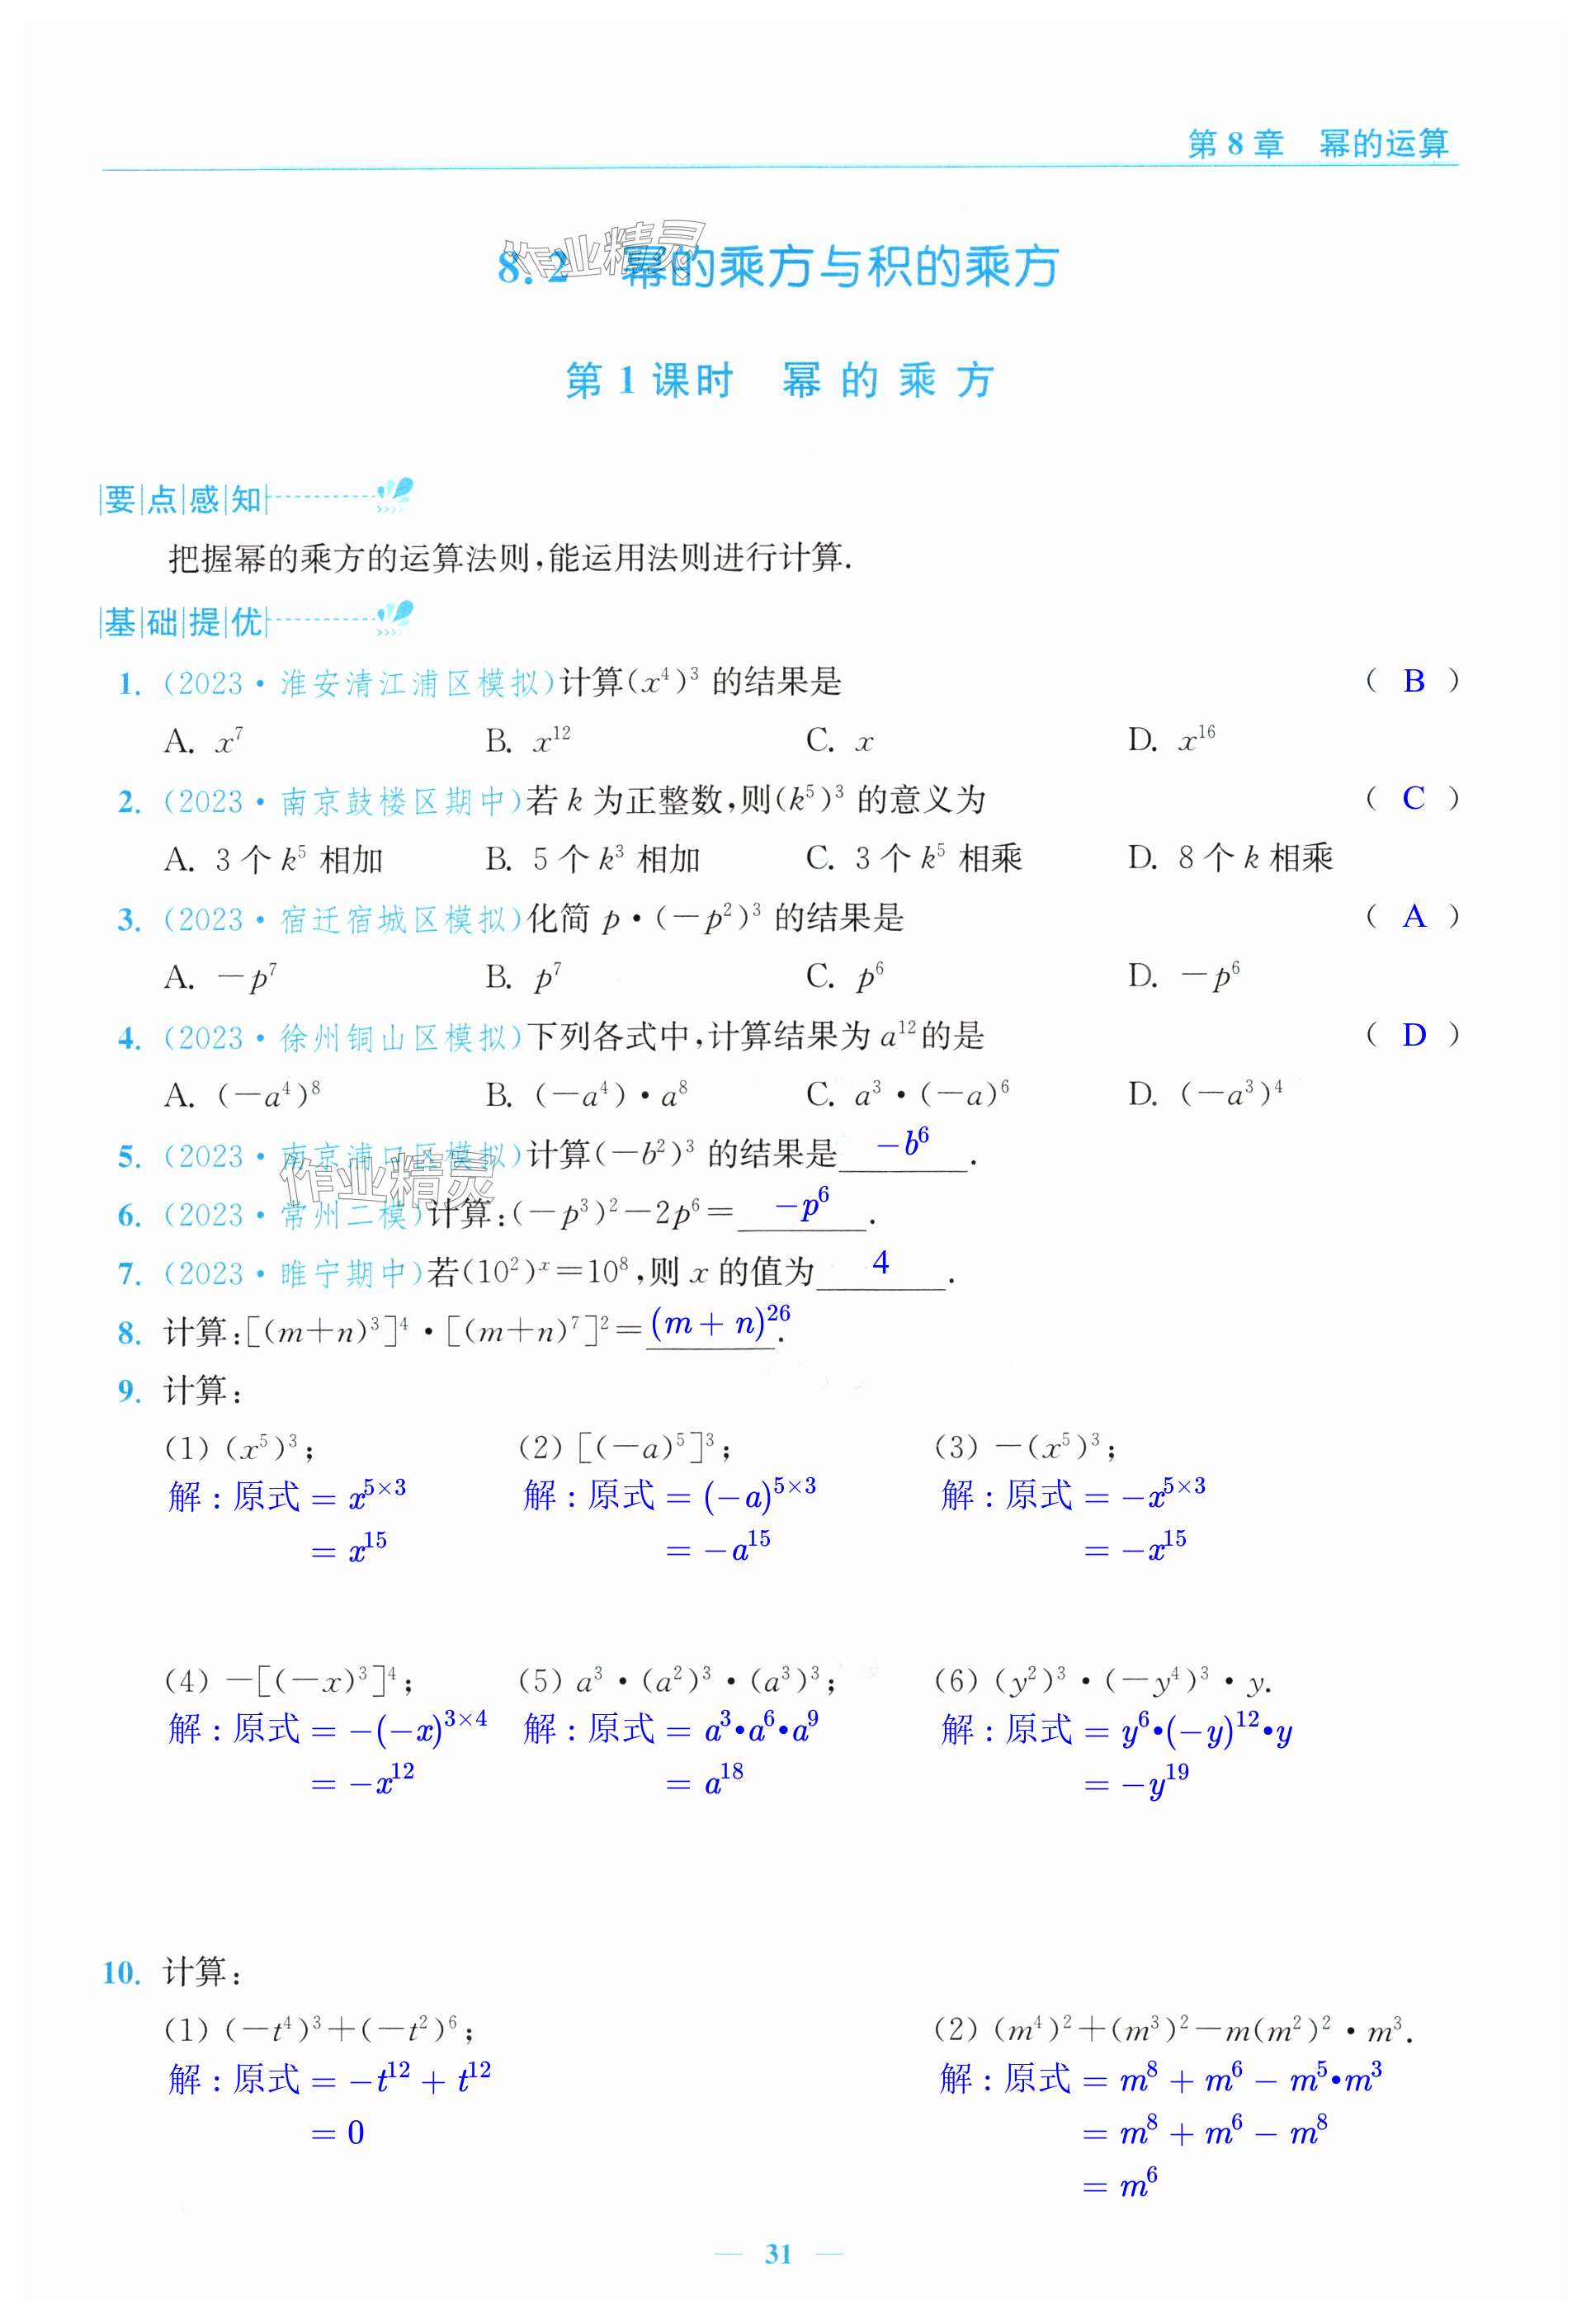 第8章 幂的运算
8.2 幂的乘方与积的乘方
作业精灵
第1课时 幂的乘方
要点感知
把握幂的乘方的运算法则,能运用法则进行计算.
基础提优
1. (2023·淮安清江浦区模拟)计算(x⁴)³ 的结果是 ( B )
A. x⁷ B. x¹² C. x D. x¹⁶
2. (2023·南京鼓楼区期中)若 k 为正整数,则(k⁵)³ 的意义为 ( C )
A. 3个 k⁵ 相加 B. 5个 k³ 相加 C. 3个 k⁵ 相乘 D. 8个 k 相乘
3. (2023·宿迁宿城区模拟)化简 p·(-p²)³ 的结果是 ( A )
A. -p⁷ B. p⁷ C. p⁶ D. -p⁶
4. (2023·徐州铜山区模拟)下列各式中,计算结果为 a¹² 的是 ( D )
A. (-a⁴)⁸ B. (-a⁴)·a⁸ C. a³·(-a)⁶ D. (-a³)⁴
5. (2023·南京浦口区模拟)计算(-b²)³ 的结果是 -b⁶ .
作业精灵
6. (2023·常州二模)计算:(-p³)²-2p⁶= -p⁶ .
7. (2023·睢宁期中)若(10²)ˣ=10⁸,则 x 的值为 4 .
8. 计算:[(m+n)³]⁴·[(m+n)⁷]²= (m+n)²⁶ .
9. 计算:
(1) (x⁵)³; (2) [(-a)⁵]³; (3) -(x⁵)³;
解:原式= x⁵ˣ³ 解:原式= (-a)⁵ˣ³ 解:原式= -x⁵ˣ³
= x¹⁵ = -a¹⁵ = -x¹⁵
(4) -[(-x)³]⁴; (5) a³·(a²)³·(a³)³; (6) (y²)³·(-y⁴)³·y.
解:原式= -(-x)³ˣ⁴ 解:原式= a³·a⁶·a⁹ 解:原式= y⁶·(-y)¹²·y
= -x¹² = a¹⁸ = -y¹⁹
10. 计算:
(1) (-t⁴)³+(-t²)⁶; (2) (m⁴)²+(m³)²-m(m²)²·m³.
解:原式= -t¹²+t¹² 解:原式= m⁸+m⁶-m⁵·m³
= 0 = m⁸+m⁶-m⁸
= m⁶
31